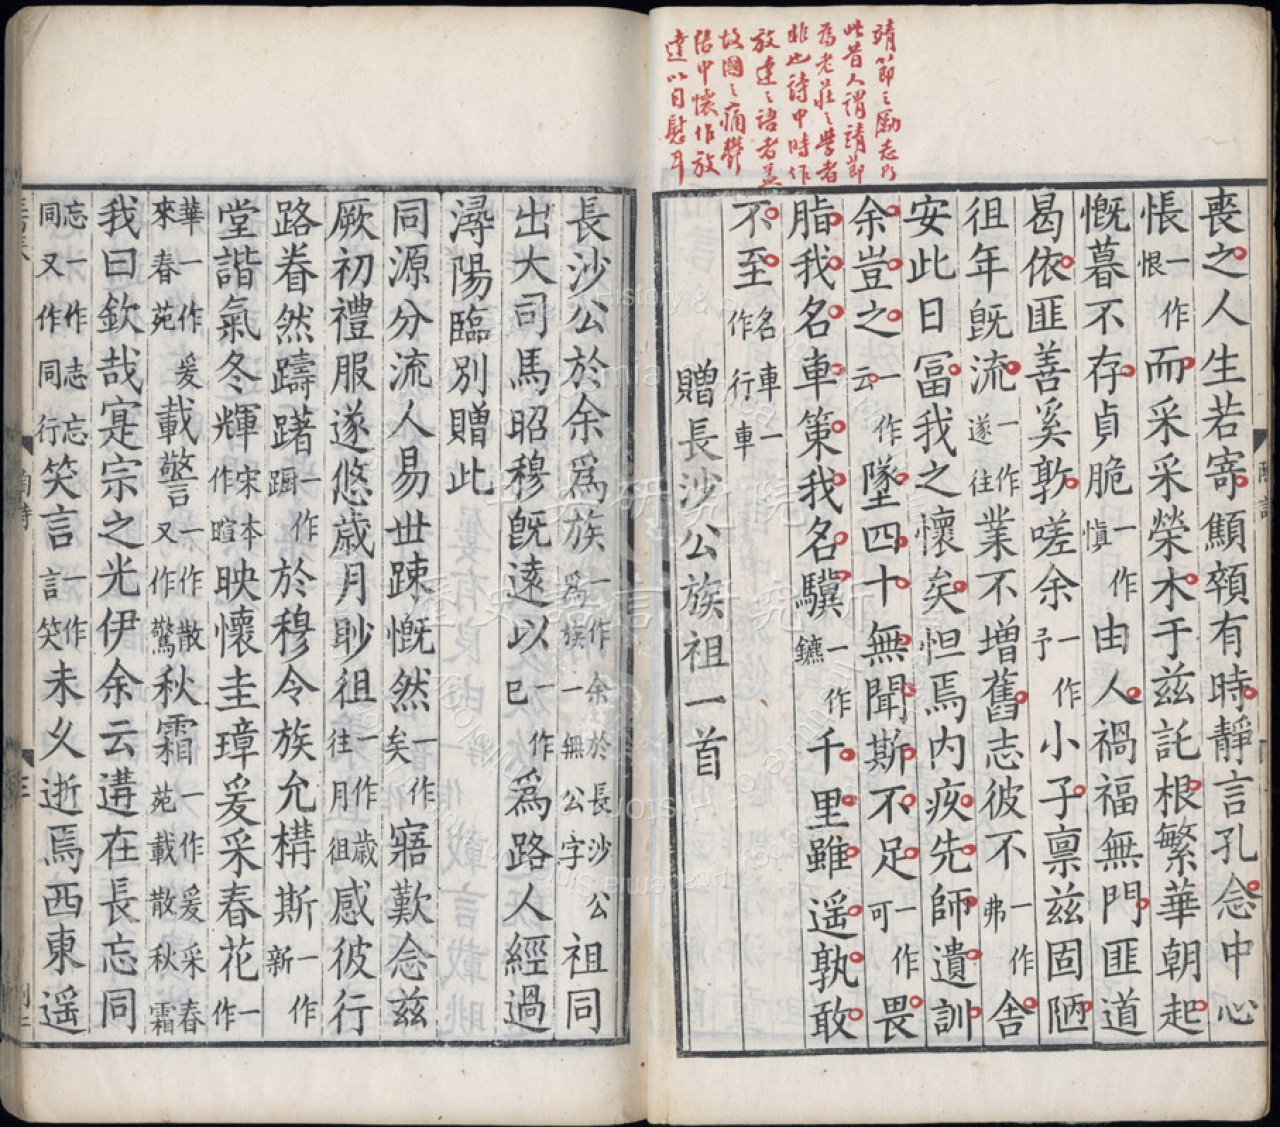 靖節之勵志
此昔人謂靖節
為老莊之學者
非也詩中時作
放達之語者蓋
故國之痛鬱
結中懷作放
達以自慰耳
喪之人生若寄顦顇有時靜言孔念中心
悵一作恨而采采榮木于兹託根繁華朝起
慨暮不存貞脆一作慎由人禍福無門匪道
曷依匪善奚敦嗟余一作予小子禀兹固陋
徂年旣流一作遂往業不增舊志彼不一作弗舍
安此日富我之懷矣怛焉内疚先師遺訓
余豈之一作云墜四十無聞斯不足一作可畏
脂我名車策我名驥一作鑣千里雖遥孰敢
不至名車一作行車
贈長沙公族祖一首
長沙公於余爲族一作余於長沙公爲族一無公字祖同
出大司馬昭穆旣遠以一作已爲路人經過
潯陽臨別贈此
同源分流人易丗踈慨然一作矣寤歎念兹
厥初禮服遂悠歲月眇徂一作歲往月徂感彼行
路眷然躊躇一作蹰於穆令族允構斯一作新
堂諧氣冬輝宋本作暄映懷圭璋爰采春花一作
華一作爰來春苑載警一作散又作驚秋霜一作爰采春苑載散秋霜
我曰欽哉寔宗之光伊余云遘在長忘同
忘一作志忘同又作同行笑言一作言笑未乆逝焉西東遥